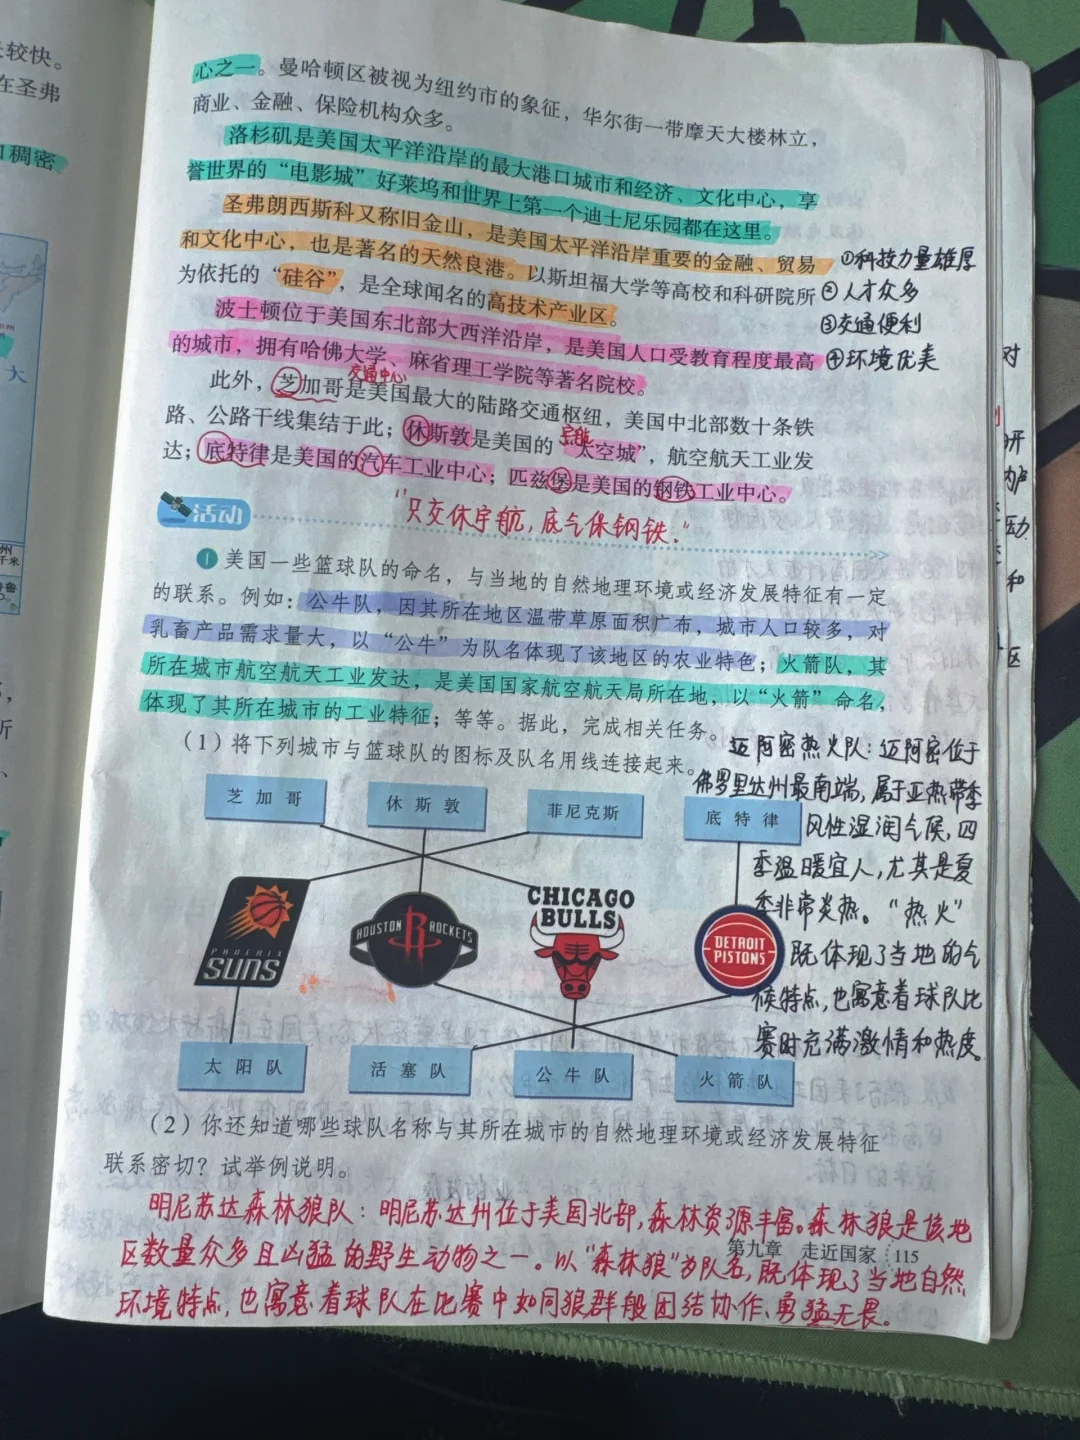 较快。
在圣弗
稠密
大
心之一。曼哈顿区被视为纽约市的象征，华尔街一带摩天大楼林立，
商业、金融、保险机构众多。
洛杉矶是美国太平洋沿岸的最大港口城市和经济、文化中心，享
誉世界的“电影城”好莱坞和世界上第一个迪士尼乐园都在这里。
圣弗朗西斯科又称旧金山，是美国太平洋沿岸重要的金融、贸易
和文化中心，也是著名的天然良港。以斯坦福大学等高校和科研院所
为依托的“硅谷”，是全球闻名的高技术产业区。
①科技力量雄厚
②人才众多
③交通便利
④环境优美
波士顿位于美国东北部大西洋沿岸，是美国人口受教育程度最高
的城市，拥有哈佛大学、麻省理工学院等著名院校。
交通中心
此外，芝加哥是美国最大的陆路交通枢纽，美国中北部数十条铁
路、公路干线集结于此；休斯敦是美国的“太空城”，航空航天工业发
宇航
达；底特律是美国的汽车工业中心；匹兹堡是美国的钢铁工业中心。
“只交休宇航，底气保钢铁。”
活动
1 美国一些篮球队的命名，与当地的自然地理环境或经济发展特征有一定
的联系。例如：公牛队，因其所在地区温带草原面积广布，城市人口较多，对
乳畜产品需求量大，以“公牛”为队名体现了该地区的农业特色；火箭队，其
所在城市航空航天工业发达，是美国国家航空航天局所在地，以“火箭”命名，
体现了其所在城市的工业特征；等等。据此，完成相关任务。
（1）将下列城市与篮球队的图标及队名用线连接起来。
迈阿密热火队：迈阿密位于
佛罗里达州最南端，属于亚热带季
风性湿润气候，四
季温暖宜人，尤其是夏
季非常炎热。“热火”
既体现了当地的气
候特点，也寓意着球队比
赛时充满激情和热度。
芝加哥
休斯敦
菲尼克斯
底特律
PHOENIX
SUNS
HOUSTON ROCKETS
CHICAGO
BULLS
DETROIT
PISTONS
太阳队
活塞队
公牛队
火箭队
（2）你还知道哪些球队名称与其所在城市的自然地理环境或经济发展特征
联系密切？试举例说明。
明尼苏达森林狼队：明尼苏达州位于美国北部，森林资源丰富。森林狼是该地
区数量众多且凶猛的野生动物之一。以“森林狼”为队名，既体现了当地自然
环境特点，也寓意着球队在比赛中如同狼群般团结协作、勇猛无畏。
第九章 走近国家 115